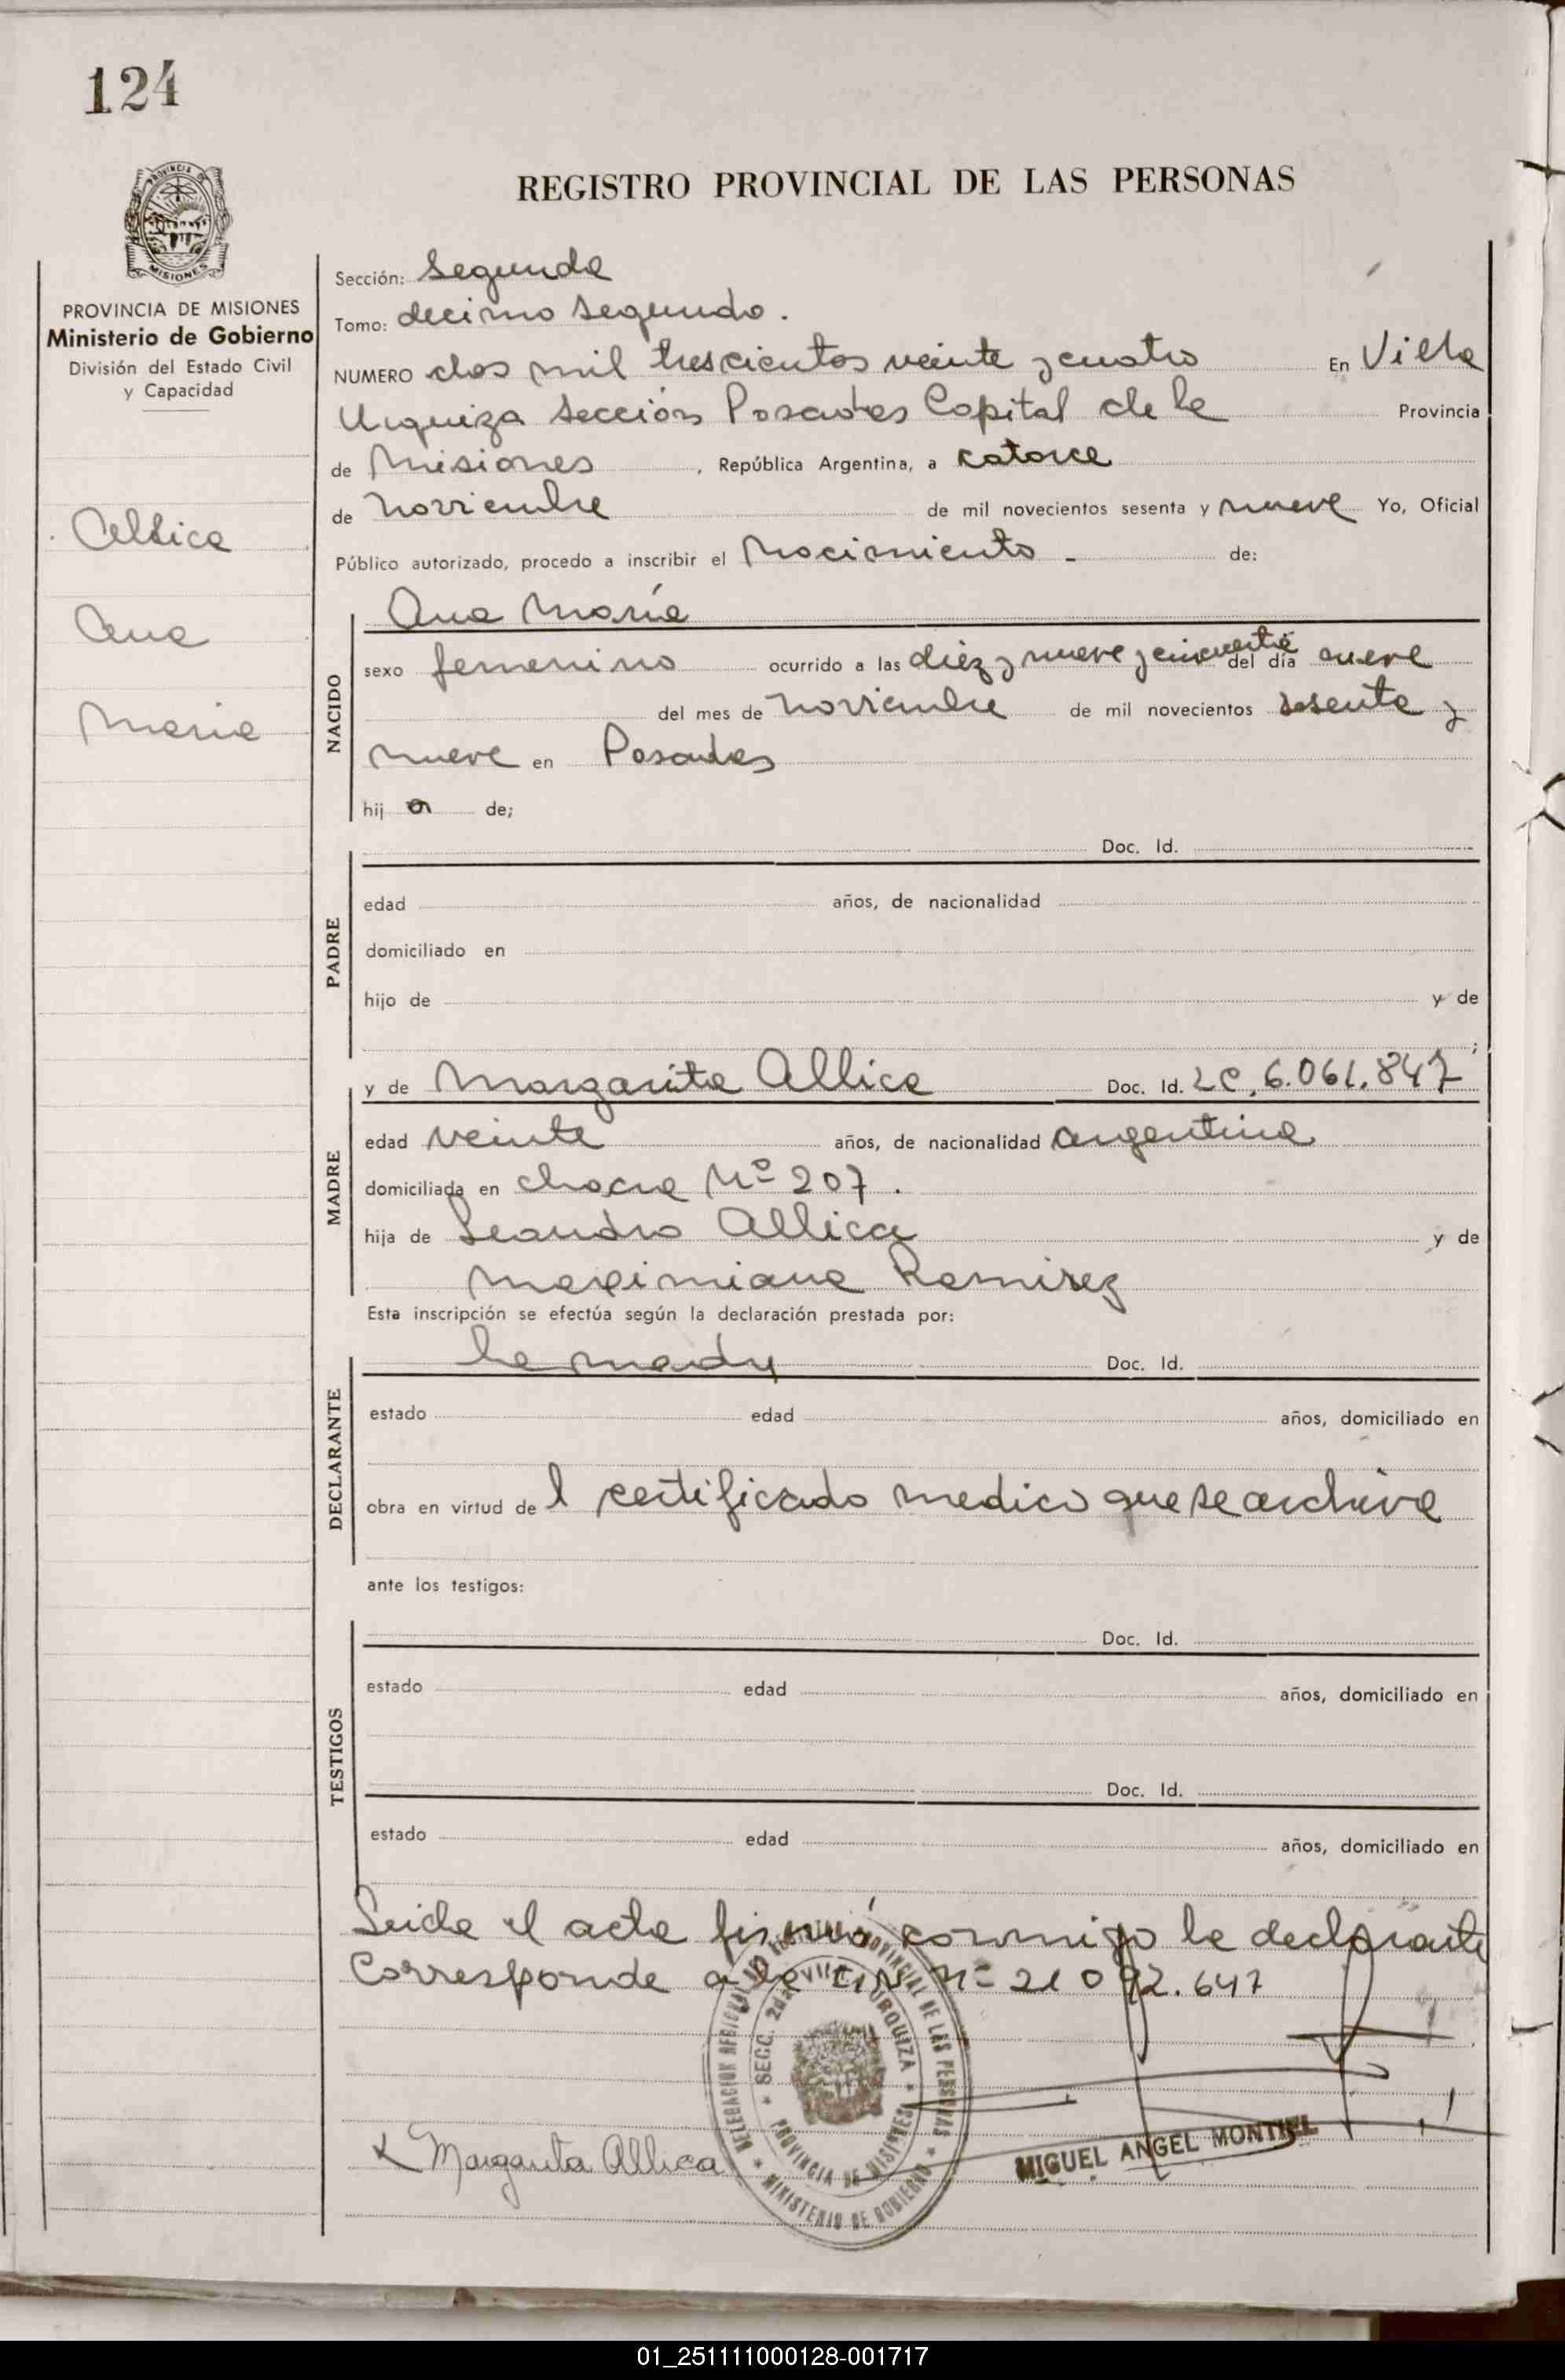 124
REGISTRO PROVINCIAL DE LAS PERSONAS
PROVINCIA DE MISIONES
PROVINCIA DE MISIONES
Ministerio de Gobierno
División del Estado Civil
y Capacidad
Allica
Ana
Maria
Sección: Segunda
Tomo: decimo segundo.
NUMERO dos mil trescientos veinte y cuatro En Villa
Urquiza Sección Posadas Capital de la Provincia
de Misiones, República Argentina, a catorce
de noviembre de mil novecientos sesenta y nueve Yo, Oficial
Público autorizado, procedo a inscribir el Nacimiento - de:
NACIDO
Ana María
sexo femenino ocurrido a las diez y nueve y cincuenta del día nueve
del mes de noviembre de mil novecientos sesenta y
nueve en Posadas
hij a de;
PADRE
Doc. Id.
edad años, de nacionalidad
domiciliado en
hijo de y de
;
MADRE
y de Margarita Allica Doc. Id. LC. 6.061.847
edad veinte años, de nacionalidad argentina
domiciliada en chacra Nº 207.
hija de Leandro Allica y de
Maximiana Ramirez
Esta inscripción se efectúa según la declaración prestada por:
DECLARANTE
la madre Doc. Id.
estado edad años, domiciliado en
obra en virtud del certificado medico que se archiva
ante los testigos:
TESTIGOS
Doc. Id.
estado edad años, domiciliado en
Doc. Id.
estado edad años, domiciliado en
Leida el acta firmó conmigo la declarante
Corresponde a la Nº 21 092.647
DELEGACION PROVINCIAL DE LAS PERSONAS
SECC. 2da. VILLA URQUIZA
PROVINCIA DE MISIONES
MINISTERIO DE GOBIERNO
x Margarita Allica
MIGUEL ANGEL MONTIEL
01_251111000128-001717